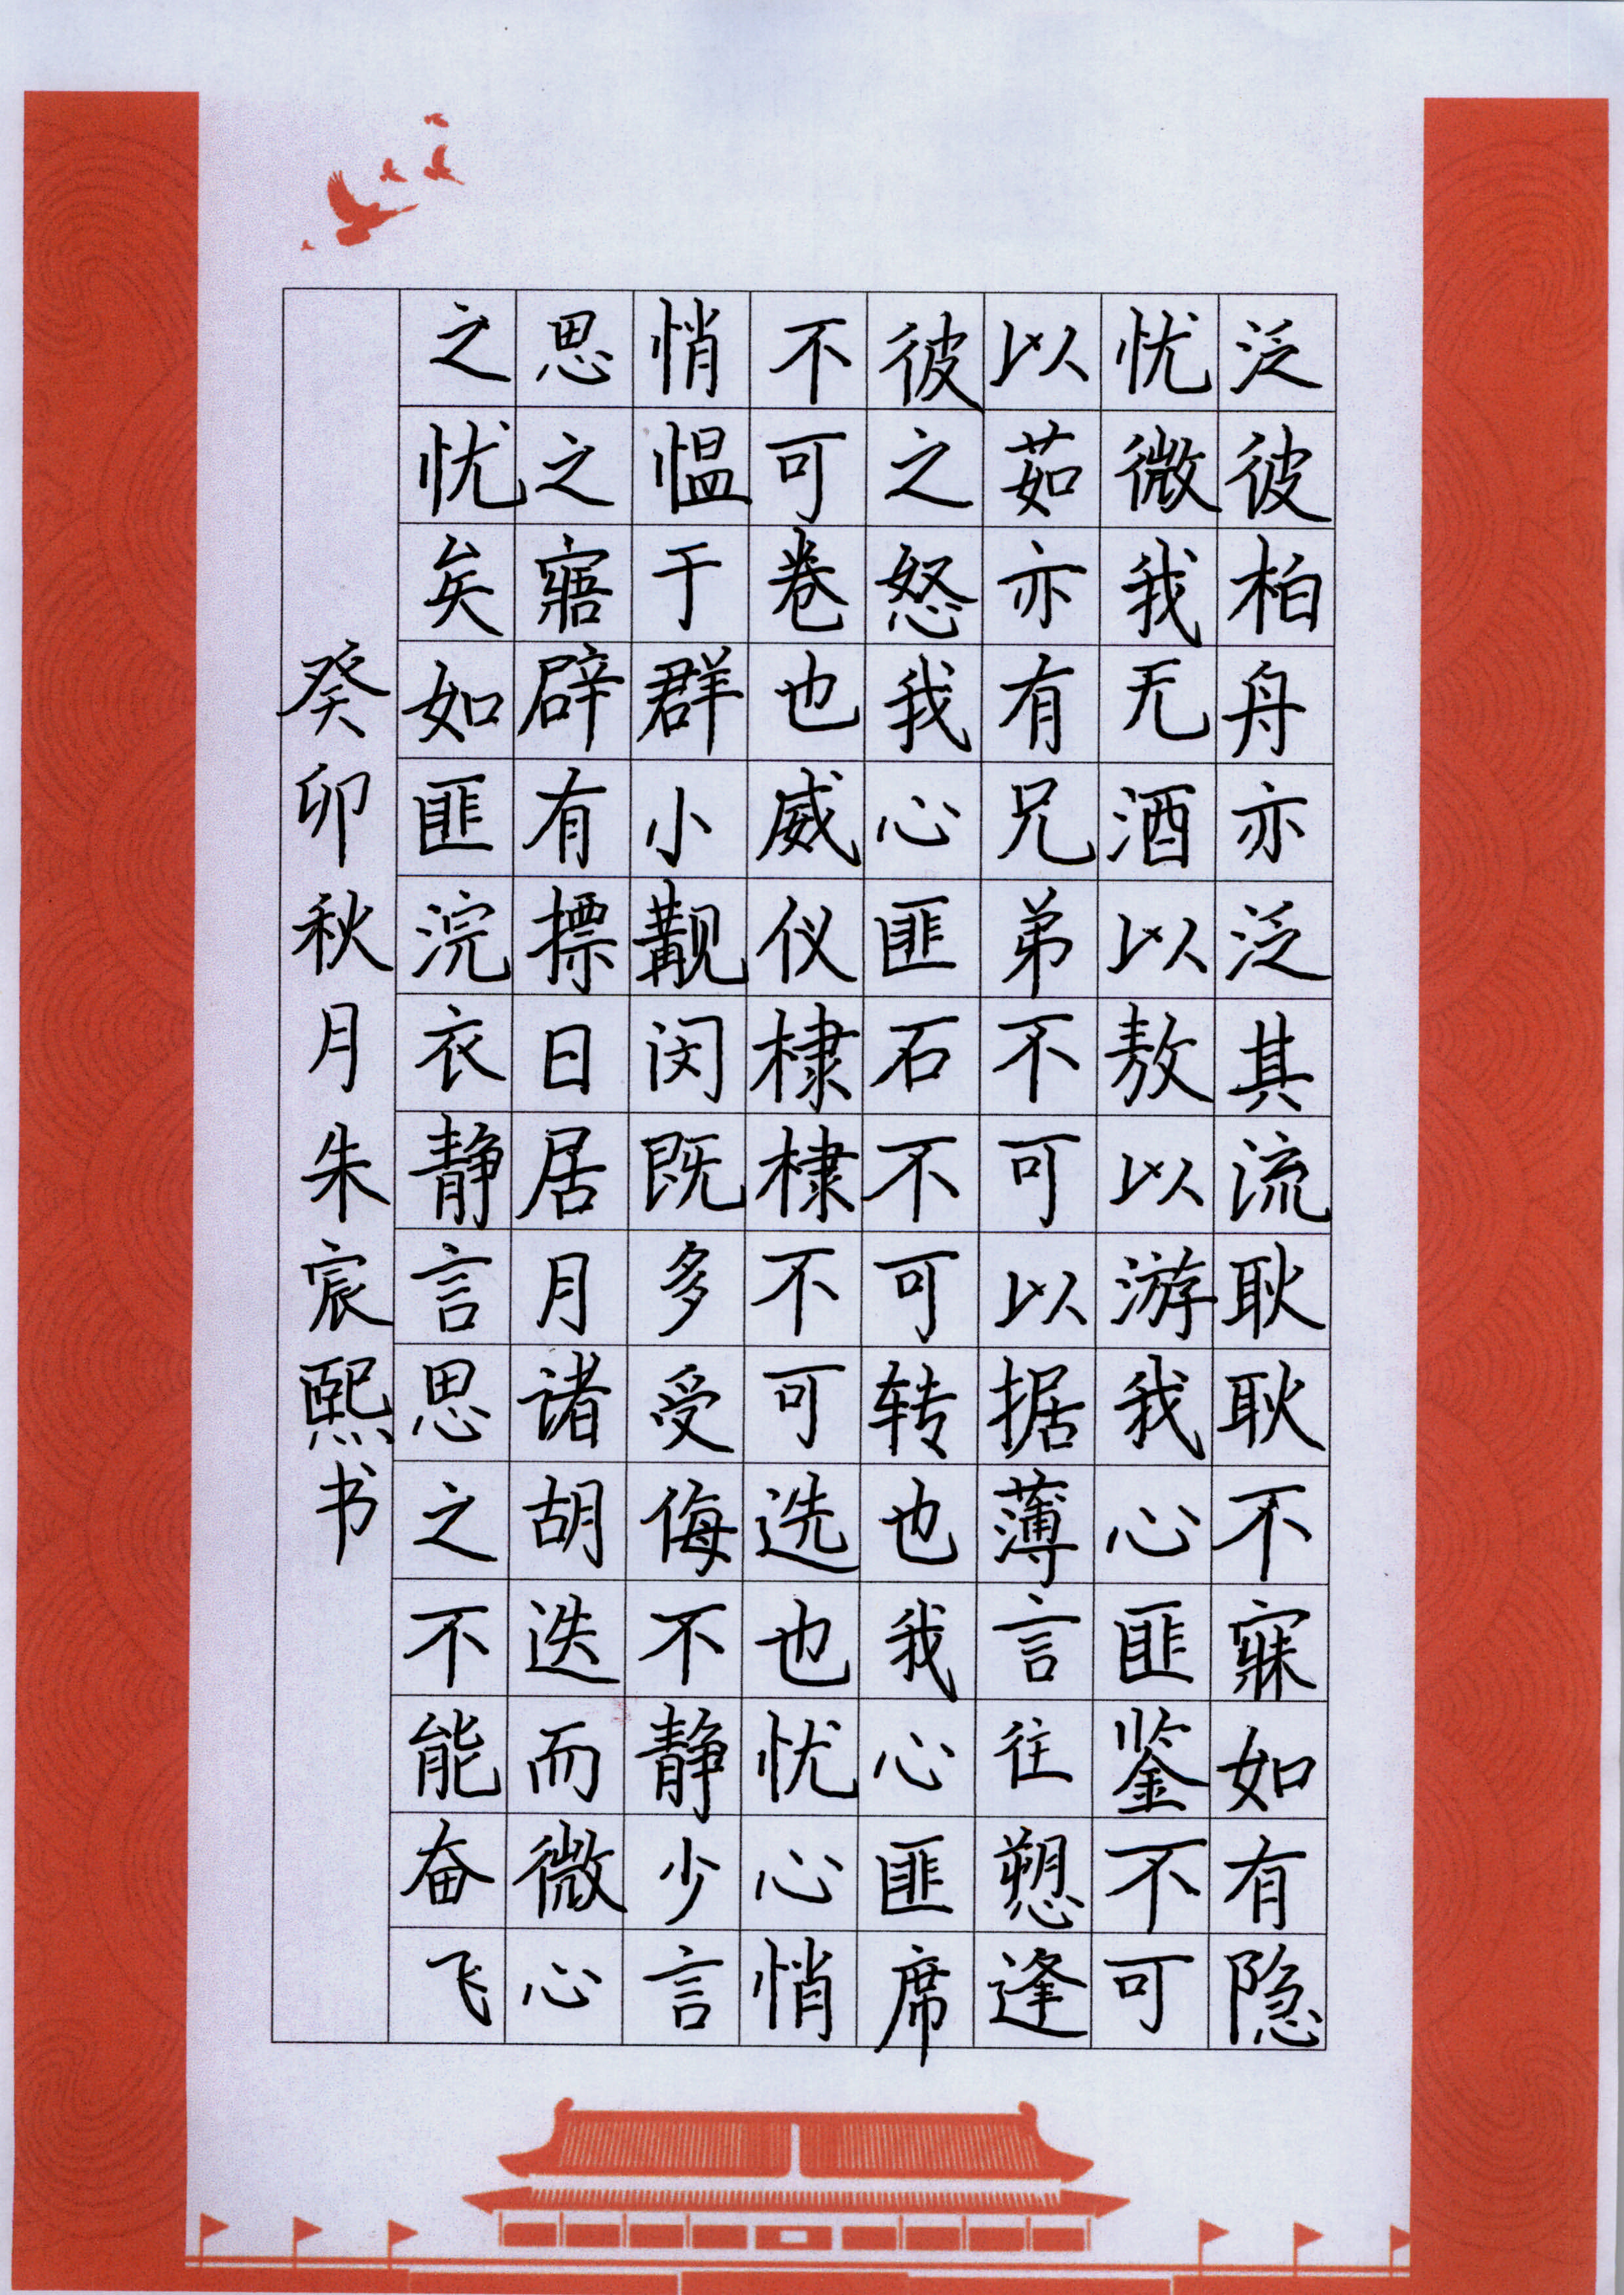 泛彼柏舟亦泛其流耿耿不寐如有隐
忧微我无酒以敖以游我心匪鉴不可
以茹亦有兄弟不可以据薄言往愬逢
彼之怒我心匪石不可转也我心匪席
不可卷也威仪棣棣不可选也忧心悄
悄愠于群小觏闵既多受侮不静少言
思之寤辟有摽日居月诸胡迭而微心
之忧矣如匪浣衣静言思之不能奋飞
癸卯秋月朱宸熙书